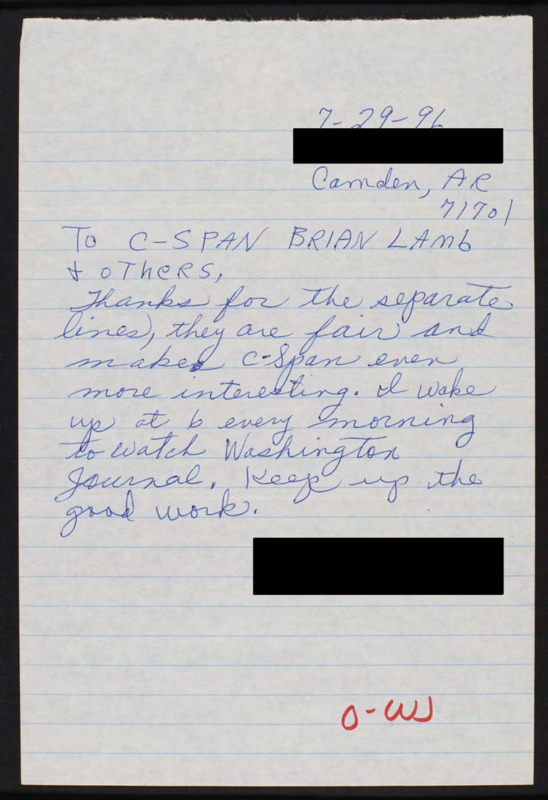 7-29-96
Camden, AR
71701
To C-SPAN BRIAN LAmb
+ oTheRS,
Thanks for the separate
lines, they are fair and
makes C-Span even
more interesting. I wake
up at 6 every morning
to watch Washington
Journal. Keep up the
good work.
O-WJ